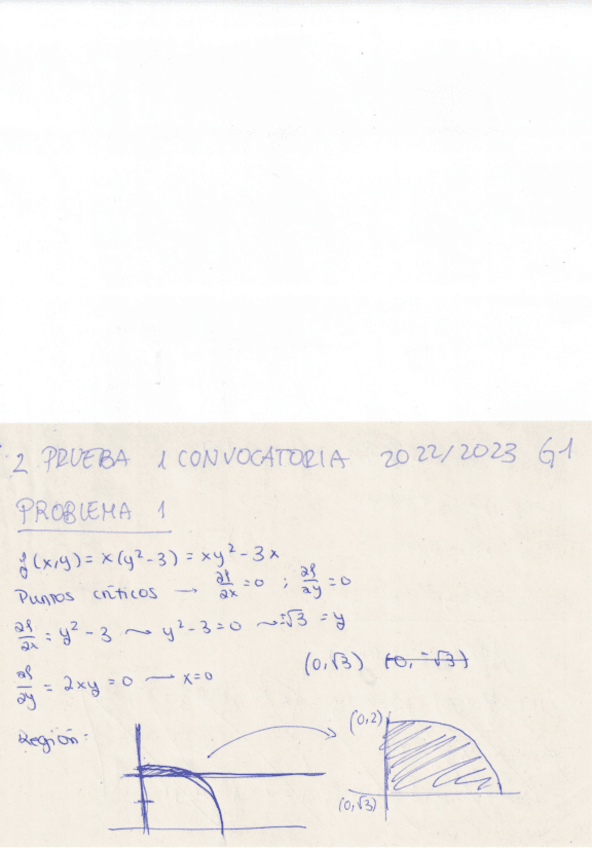 2 PRUEBA 1 CONVOCATORIA 2022/2023 G1
PROBLEMA 1
f(x,y) = x(y²-3) = xy² - 3x
Puntos críticos → ∂f/∂x = 0 ; ∂f/∂y = 0
∂f/∂x = y² - 3 ~ y² - 3 = 0 ~ ±√3 = y
(0,√3) (0,-√3)
∂f/∂y = 2xy = 0 → x=0
Región:
(0,2)
(0,√3)